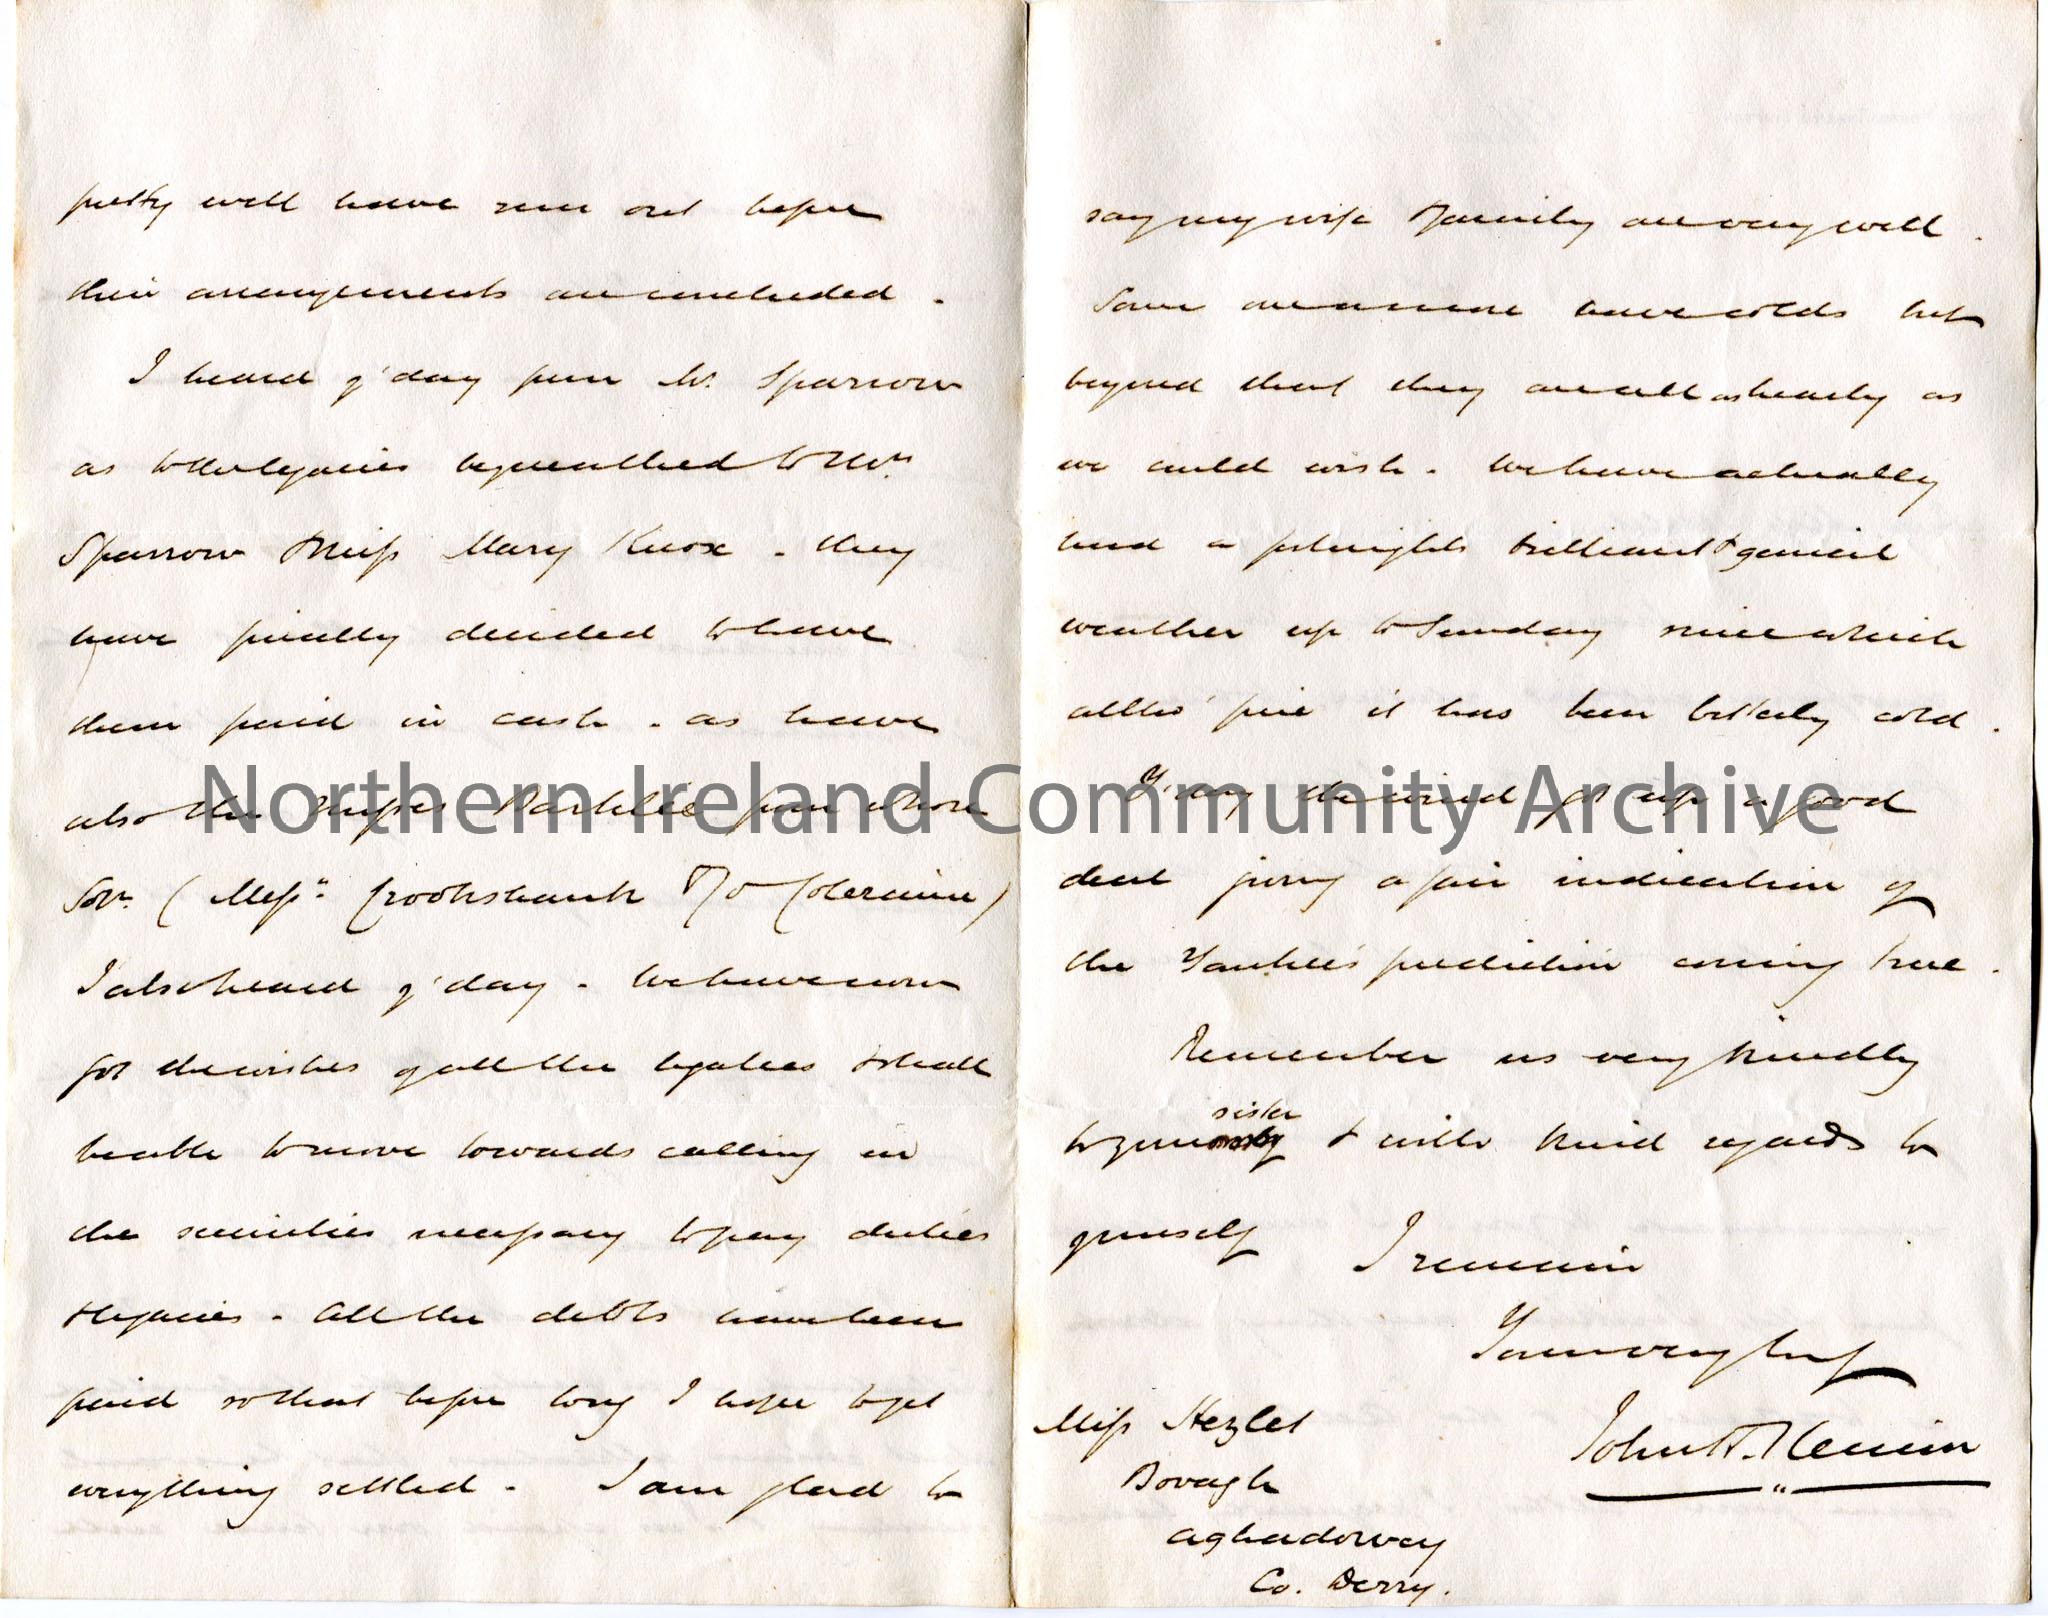 pretty well have run out before
their arrangements are concluded .
I heard y'day from Mr. Sparrow
as to the legacies bequeathed to Mrs.
Sparrow & Miss Mary Knox - they
have finally decided to have
them paid in cash - as have
also the Misses from whose
Solr. (Messrs. Crookshank Coleraine)
I also heard y'day - We have now
got the wishes of all the legatees & shall
be able to move towards calling in
the securities necessary to pay duties
& legacies - All the debts have been
paid so that before long I hope to get
everything settled - I am glad to
say my wife & family are very well .
Some one or more have colds but
beyond that they are all as hearty as
we could wish - We have actually
had a fortnights brilliant & genial
weather up to Sunday since which
altho' fine it has been bitterly cold .
Y'day the wind got up a good
deal giving a fair indication of
the Yankee's prediction coming true .
Remember us very kindly
to your sister & with kind regards to
yourself I remain
Yours very truly
John H.
Miss Hezlet
Bovagh
Aghadowey
Co. Derry.
Northern Ireland Community Archive